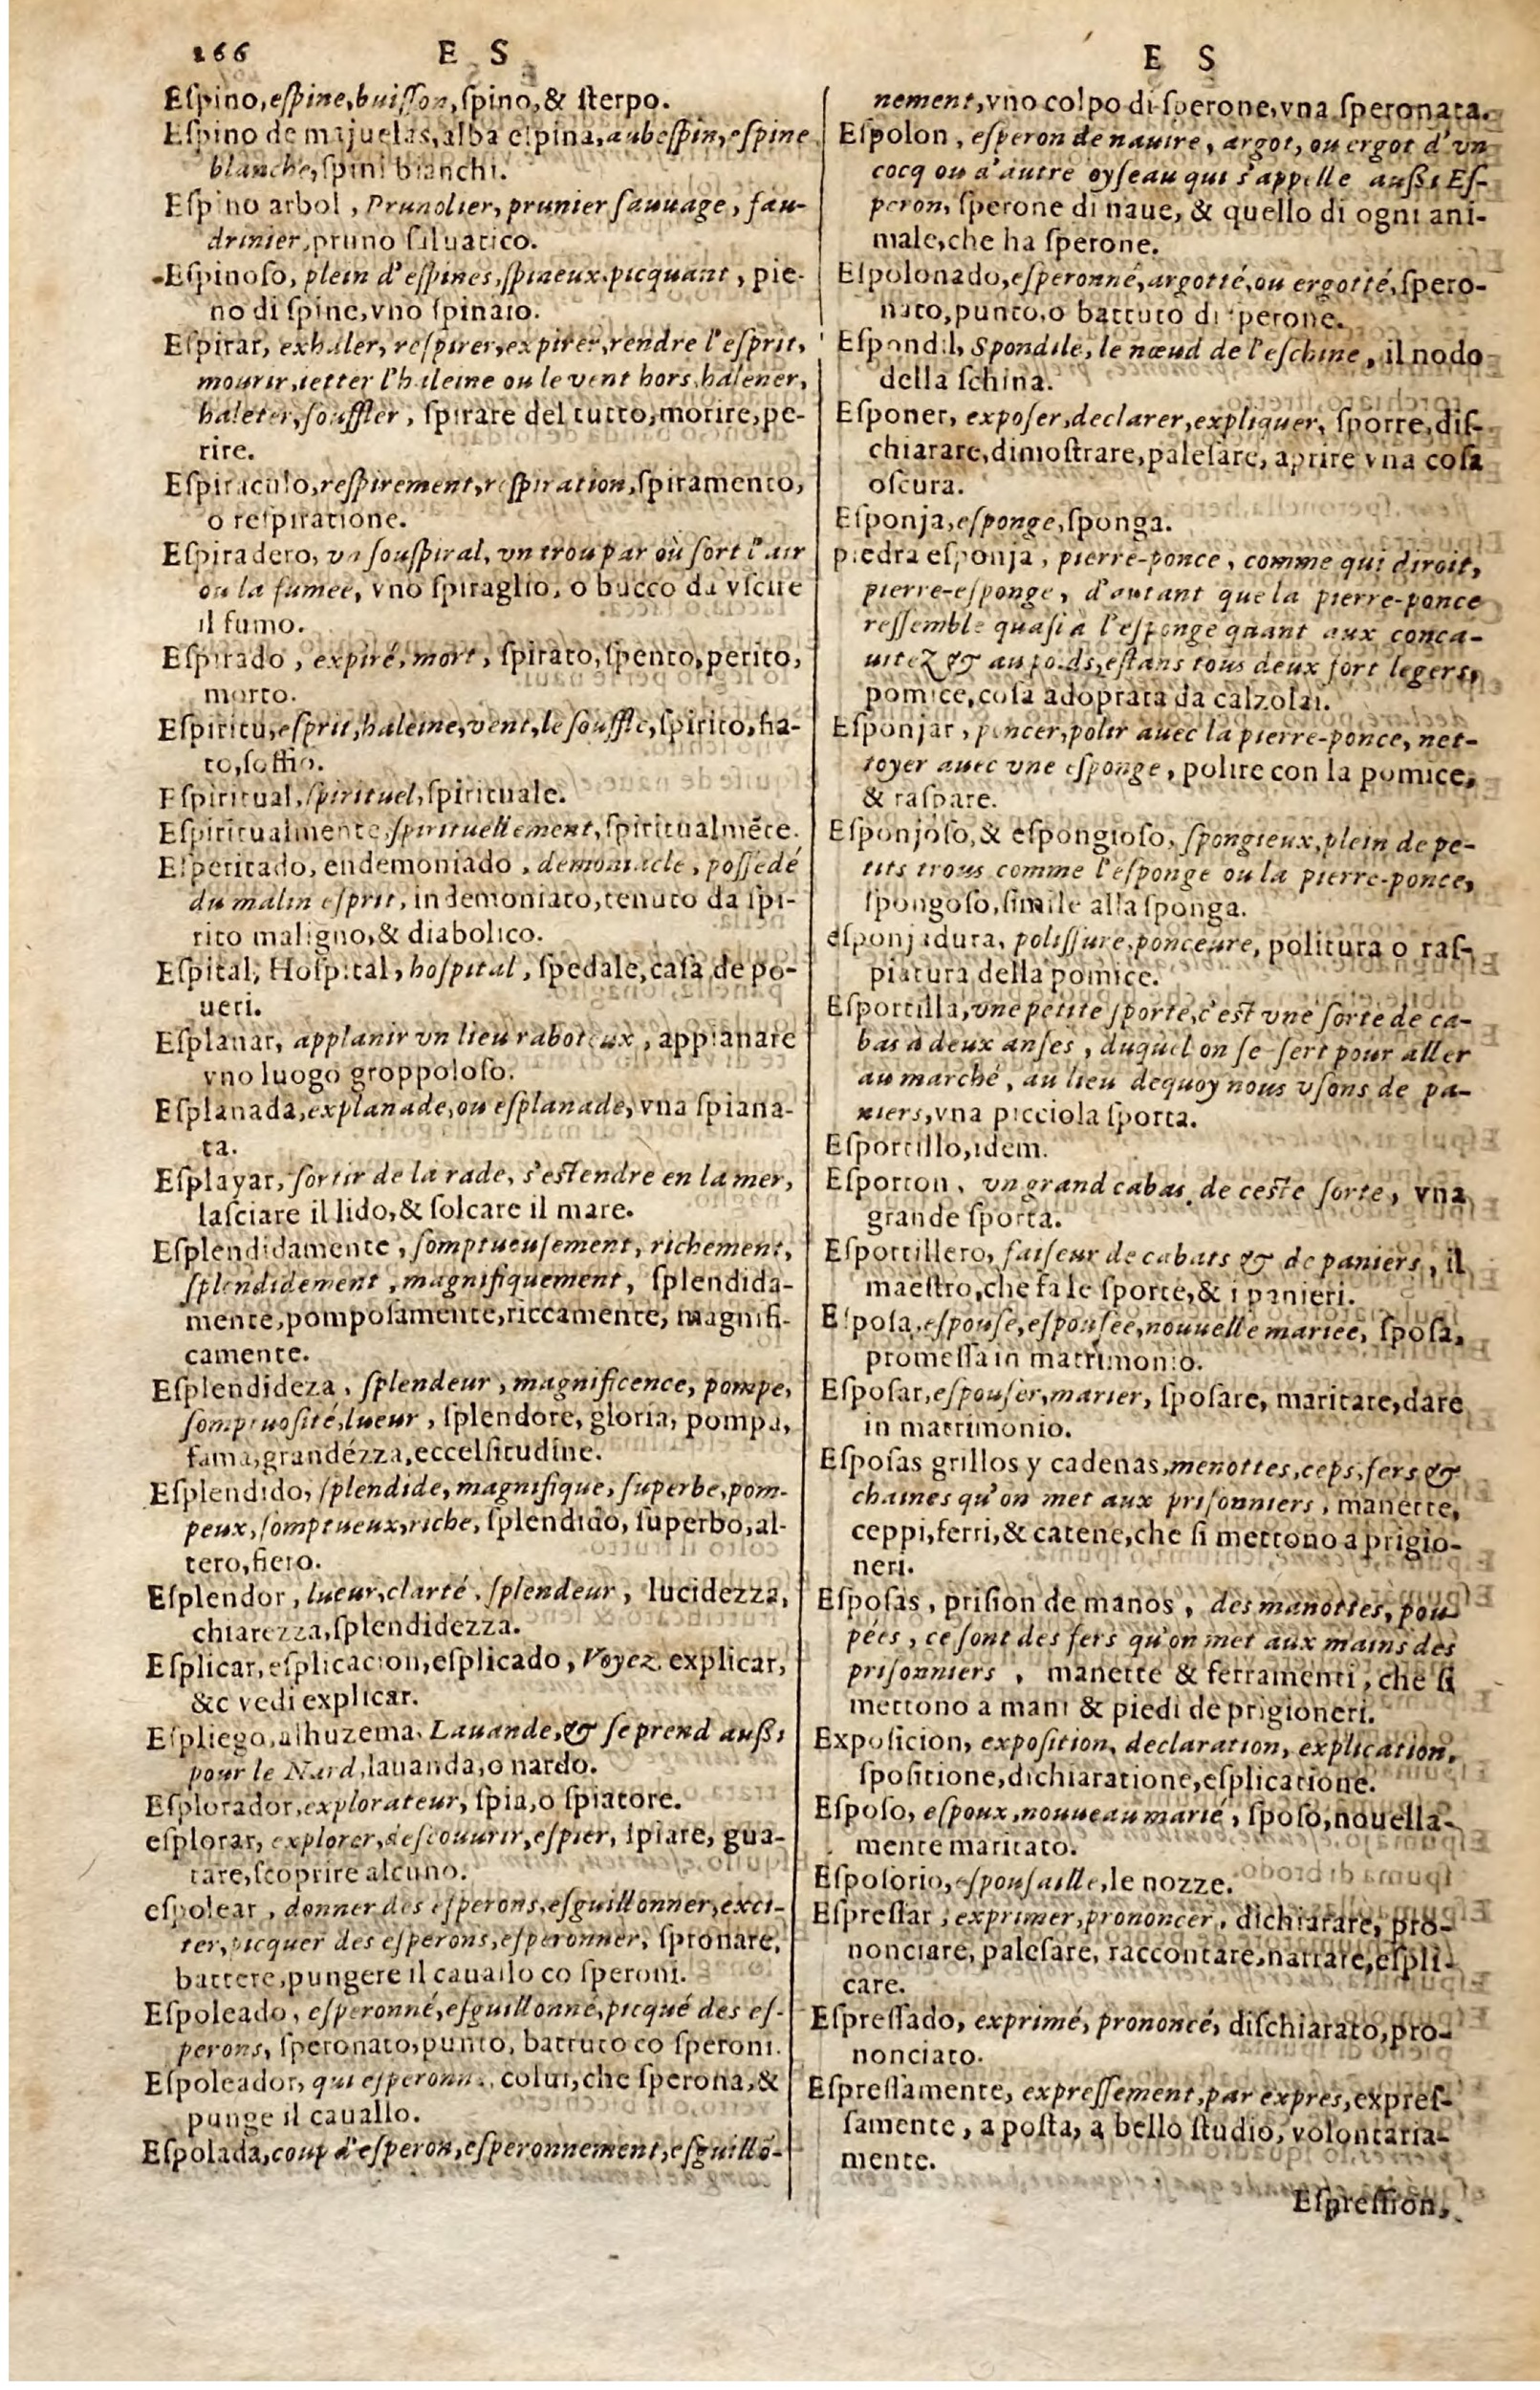 266 E S
Eſpino, eſpine, buiſſon, ſpino, & ſterpo.
Eſpino de majuelas, alba eſpina, aubeſpin, eſpine
blanche, ſpini bianchi.
Eſpino arbol, Prunolier, prunier ſauuage, ſau-
drinier, pruno ſiluatico.
Eſpinoſo, plein d'eſpines, ſpineux, picquant, pie-
no di ſpine, vno ſpinaio.
Eſpirar, exhaler, reſpirer, expirer, rendre l'eſprit,
mourir, ietter l'haleine ou le vent hors, halener,
haleter, ſouffler, ſpirare del tutto, morire, pe-
rire.
Eſpiraculo, reſpirement, reſpiration, ſpiramento,
o reſpiratione.
Eſpiradero, vn ſouſpiral, vn trou par où ſort l'air
ou la fumee, vno ſpiraglio, o bucco da vſcire
il fumo.
Eſpirado, expiré, mort, ſpirato, ſpento, perito,
morto.
Eſpiritu, eſprit, haleine, vent, le ſouffle, ſpirito, fia-
to, ſoffio.
Eſpiritual, ſpirituel, ſpirituale.
Eſpiritualmente, ſpirituellement, ſpiritualmẽte.
Eſperitado, endemoniado, demoniacle, poſſedé
du malin eſprit, indemoniato, tenuto da ſpi-
rito maligno, & diabolico.
Eſpital, Hoſpital, hoſpital, ſpedale, caſa de po-
ueri.
Eſplanar, applanir vn lieu raboteux, appianare
vno luogo groppoloſo.
Eſplanada, explanade, ou eſplanade, vna ſpiana-
ta.
Eſplayar, ſortir de la rade, s'eſtendre en la mer,
laſciare il lido, & ſolcare il mare.
Eſplendidamente, ſomptueuſement, richement,
ſplendidement, magnifiquement, ſplendida-
mente, pompoſamente, riccamente, magnifi-
camente.
Eſplendideza, ſplendeur, magnificence, pompe,
ſomptuoſité, lueur, ſplendore, gloria, pompa,
fama, grandézza, eccelſitudine.
Eſplendido, ſplendide, magnifique, ſuperbe, pom-
peux, ſomptueux, riche, ſplendido, ſuperbo, al-
tero, fiero.
Eſplendor, lueur, clarté, ſplendeur, lucidezza,
chiarezza, ſplendidezza.
Eſplicar, eſplicacion, eſplicado, Voyez explicar,
&c vedi explicar.
Eſpliego, alhuzema, Lauande, & ſe prend auſſi
pour le Nard, lauanda, o nardo.
Eſplorador, explorateur, ſpia, o ſpiatore.
eſplorar, explorer, deſcouurir, eſpier, ſpiare, gua-
tare, ſcoprire alcuno.
eſpolear, donner des eſperons, eſguillonner, exci-
ter, picquer des eſperons, eſperonner, ſpronare,
battere, pungere il cauallo co ſperoni.
Eſpoleado, eſperonné, eſguillonné, picqué des eſ-
perons, ſperonato, punto, battuto co ſperoni.
Eſpoleador, qui eſperonne, colui, che ſperona, &
punge il cauallo.
Eſpolada, coup d'eſperon, eſperonnement, eſguillõ-
E S
nement, vno colpo di ſperone, vna ſperonata.
Eſpolon, eſperon de nauire, argot, ou ergot d'vn
cocq ou d'autre oyſeau qui s'appelle auſſi Eſ-
peron, ſperone di naue, & quello di ogni ani-
male, che ha ſperone.
Eſpolonado, eſperonné, argotté, ou ergotté, ſpero-
nato, punto, o battuto di ſperone.
Eſpondil, Spondile, le nœud de l'eſchine, il nodo
della ſchina.
Eſponer, expoſer, declarer, expliquer, ſporre, diſ-
chiarare, dimoſtrare, paleſare, aprire vna coſa
oſcura.
Eſponja, eſponge, ſponga.
piedra eſponja, pierre-ponce, comme qui diroit,
pierre-eſponge, d'autant que la pierre-ponce
reſſemble quaſi à l'eſponge quant aux conca-
uitez & au poids, eſtans tous deux fort legers,
pomice, coſa adoprata da calzolai.
Eſponjar, poncer, polir auec la pierre-ponce, net-
toyer auec vne eſponge, polire con la pomice,
& raſpare.
Eſponjoſo, & eſpongioſo, ſpongieux, plein de pe-
tits trous comme l'eſponge ou la pierre-ponce,
ſpongoſo, ſimile alla ſponga.
eſponjadura, poliſſure, ponceure, politura o raſ-
piatura della pomice.
Eſportilla, vne petite ſporte, c'eſt vne ſorte de ca-
bas à deux anſes, duquel on ſe ſert pour aller
au marché, au lieu dequoy nous vſons de pa-
niers, vna picciola ſporta.
Eſportillo, idem.
Eſporton, vn grand cabas de ceſte ſorte, vna
grande ſporta.
Eſportillero, faiſeur de cabats & de paniers, il
maeſtro, che fa le ſporte, & i panieri.
Eſpoſa, eſpouſe, eſpouſée, nouuelle mariee, ſpoſa,
promeſſa in matrimonio.
Eſpoſar, eſpouſer, marier, ſpoſare, maritare, dare
in matrimonio.
Eſpoſas grillos y cadenas, menottes, ceps, fers &
chaines qu'on met aux priſonniers, manette,
ceppi, ferri, & catene, che ſi mettono a prigio-
neri.
Eſpoſas, priſion de manos, des manottes, pou-
pées, ce ſont des fers qu'on met aux mains des
priſonniers, manette & ferramenti, che ſi
mettono a mani & piedi de prigioneri.
Expoſicion, expoſition, declaration, explication,
ſpoſitione, dichiaratione, eſplicatione.
Eſpoſo, eſpoux, nouueau marié, ſpoſo, nouella-
mente maritato.
Eſpoſorio, eſpouſaille, le nozze.
Eſpreſſar, exprimer, prononcer, dichiarare, pro-
nonciare, paleſare, raccontare, narrare, eſpli-
care.
Eſpreſſado, exprimé, prononcé, diſchiarato, pro-
nonciato.
Eſpreſſamente, expreſſement, par expres, expreſ-
ſamente, a poſta, a bello ſtudio, volontaria-
mente.
Eſpreſſion,